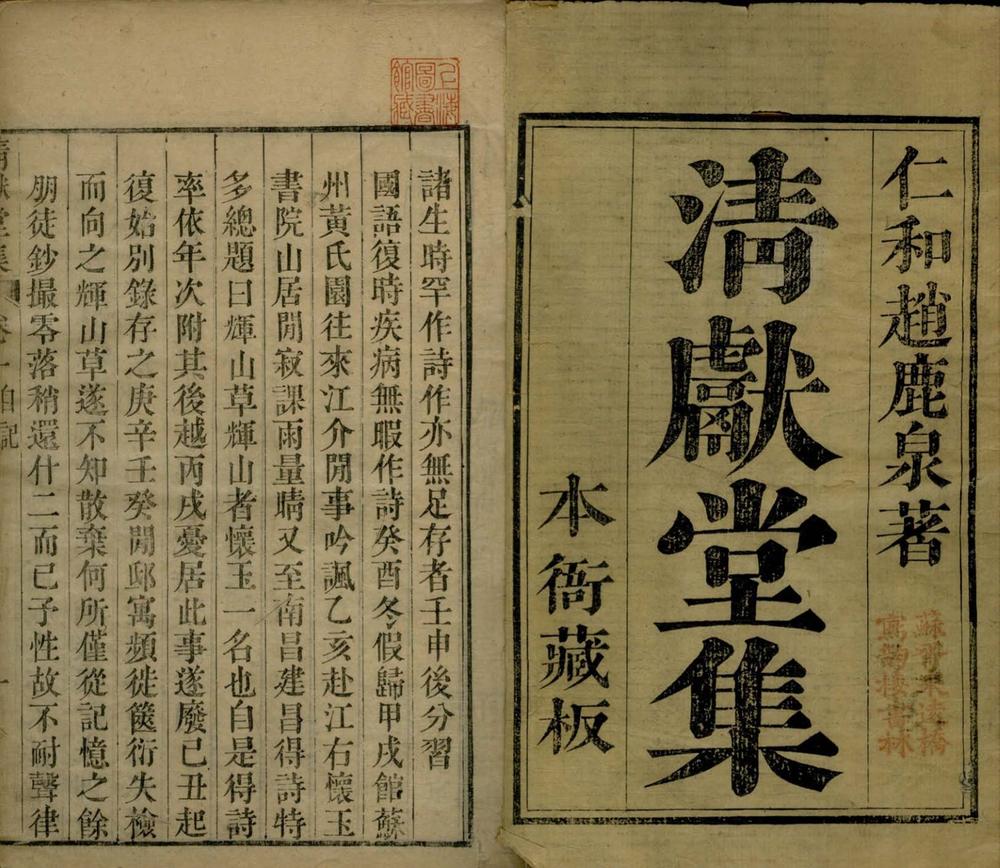 仁和趙鹿泉著
清獻堂集
本衙藏板
上海
圖書
館藏
諸生時罕作詩作亦無足存者壬申後分習
國語復時疾病無暇作詩癸酉冬假歸甲戌館蘇
州黃氏園往來江介閒事吟諷乙亥赴江右懷玉
書院山居閒寂課雨量晴又至南昌建昌得詩特
多總題曰輝山草輝山者懷玉一名也自是得詩
率依年次附其後越丙戌憂居此事遂廢己丑起
復始別錄存之庚辛壬癸閒邸寓頻徙篋衍失檢
而向之輝山草遂不知散棄何所僅從記憶之餘
朋徒鈔撮零落稍還什二而已予性故不耐聲律
清獻堂集 卷一自記 一